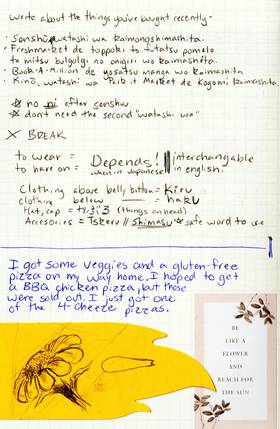 Wrote about the things you've bought recently-
· Senshū watashi wa kaimonoshimashita.
· Freshmarket de toppoki to futatsu pomelo
to mitsu bulgolgi no onigiri wo kaimashita.
· Book-A-Million de yosatsu manga wo kaimashita
· Kinō, watashi wa Park it Market de kogomi kaimashita.
☆ no ni after senshuu
☆ don't need the second "watashi wa"
X BREAK
to wear =
to have on =
Depends!
when in Japanese
interchangable
in english.
Clothing above belly button = Kiru
clothing below = haku
Hat, cap = (things on head)
Accesories = Tskeru // Shimasu ☆ safe word to use
I got some veggies and a gluten-free
pizza on my way home. I hoped to get
a BBQ chicken pizza, but those
were sold out. I just got one
of the 4-cheeze pizzas.
BE
LIKE A
FLOWER
AND
REACH FOR
THE SUN